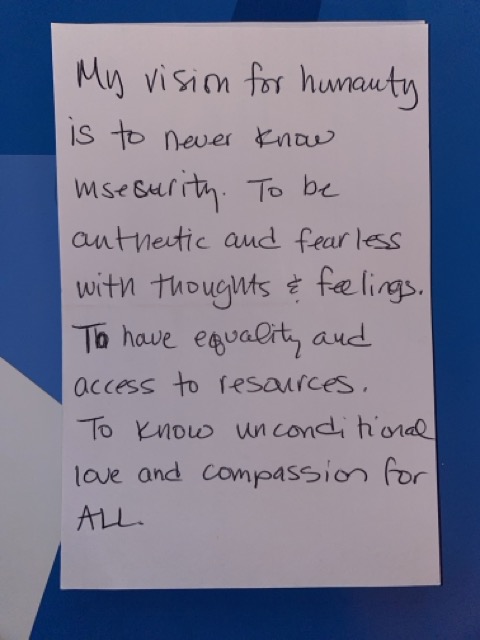 My vision for humanity
is to never know
insecurity. To be
authentic and fearless
with thoughts & feelings.
To have equality and
access to resources.
To know unconditional
love and compassion for
ALL.